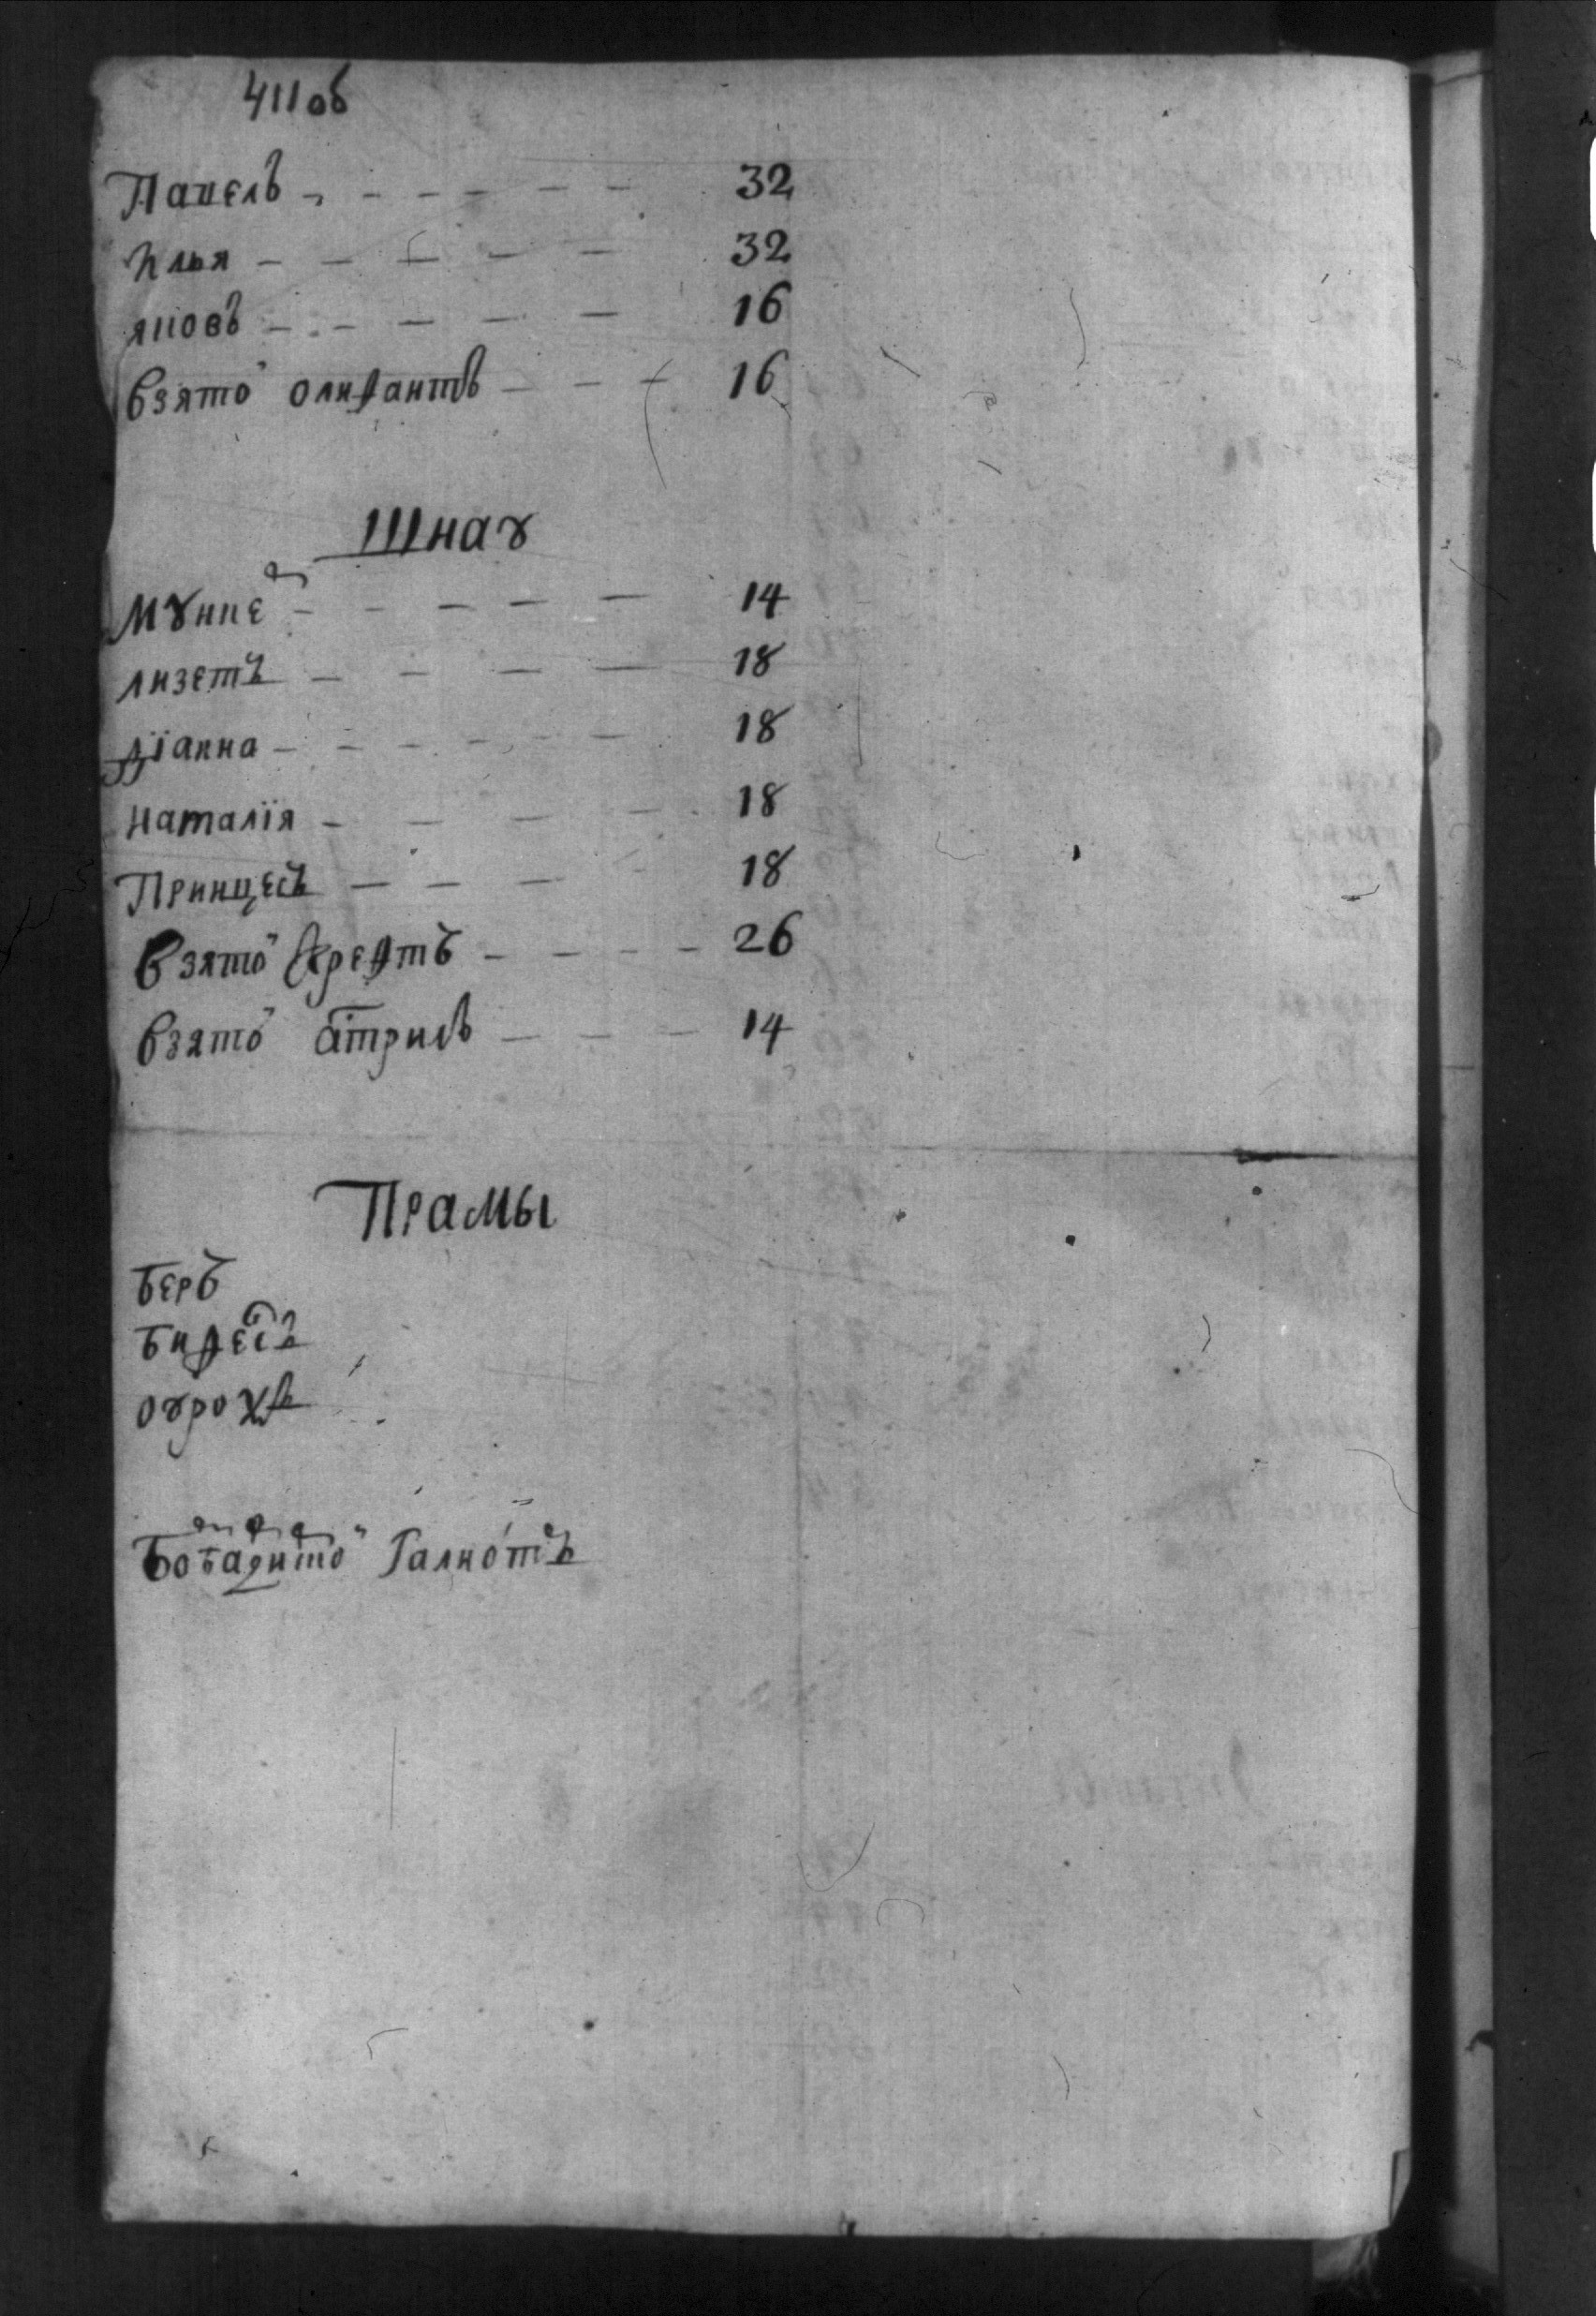 411 об
Павелъ - - - - - - 32
Илья - - - - - 32
яковъ - - - - - 16
взятой олифантъ - - - 16
Шнаꙋ
Мꙋнкеръ - - - - - 14
лизетъ - - - - 18
діанна - - - - - - 18
Наталія - - - - 18
Принцесъ - - - - 18
взятой - - - - 26
взятой - - - 14
Прамы
Беръ
Бифелсъ
оурохсъ
Бомбардирской Галиотъ